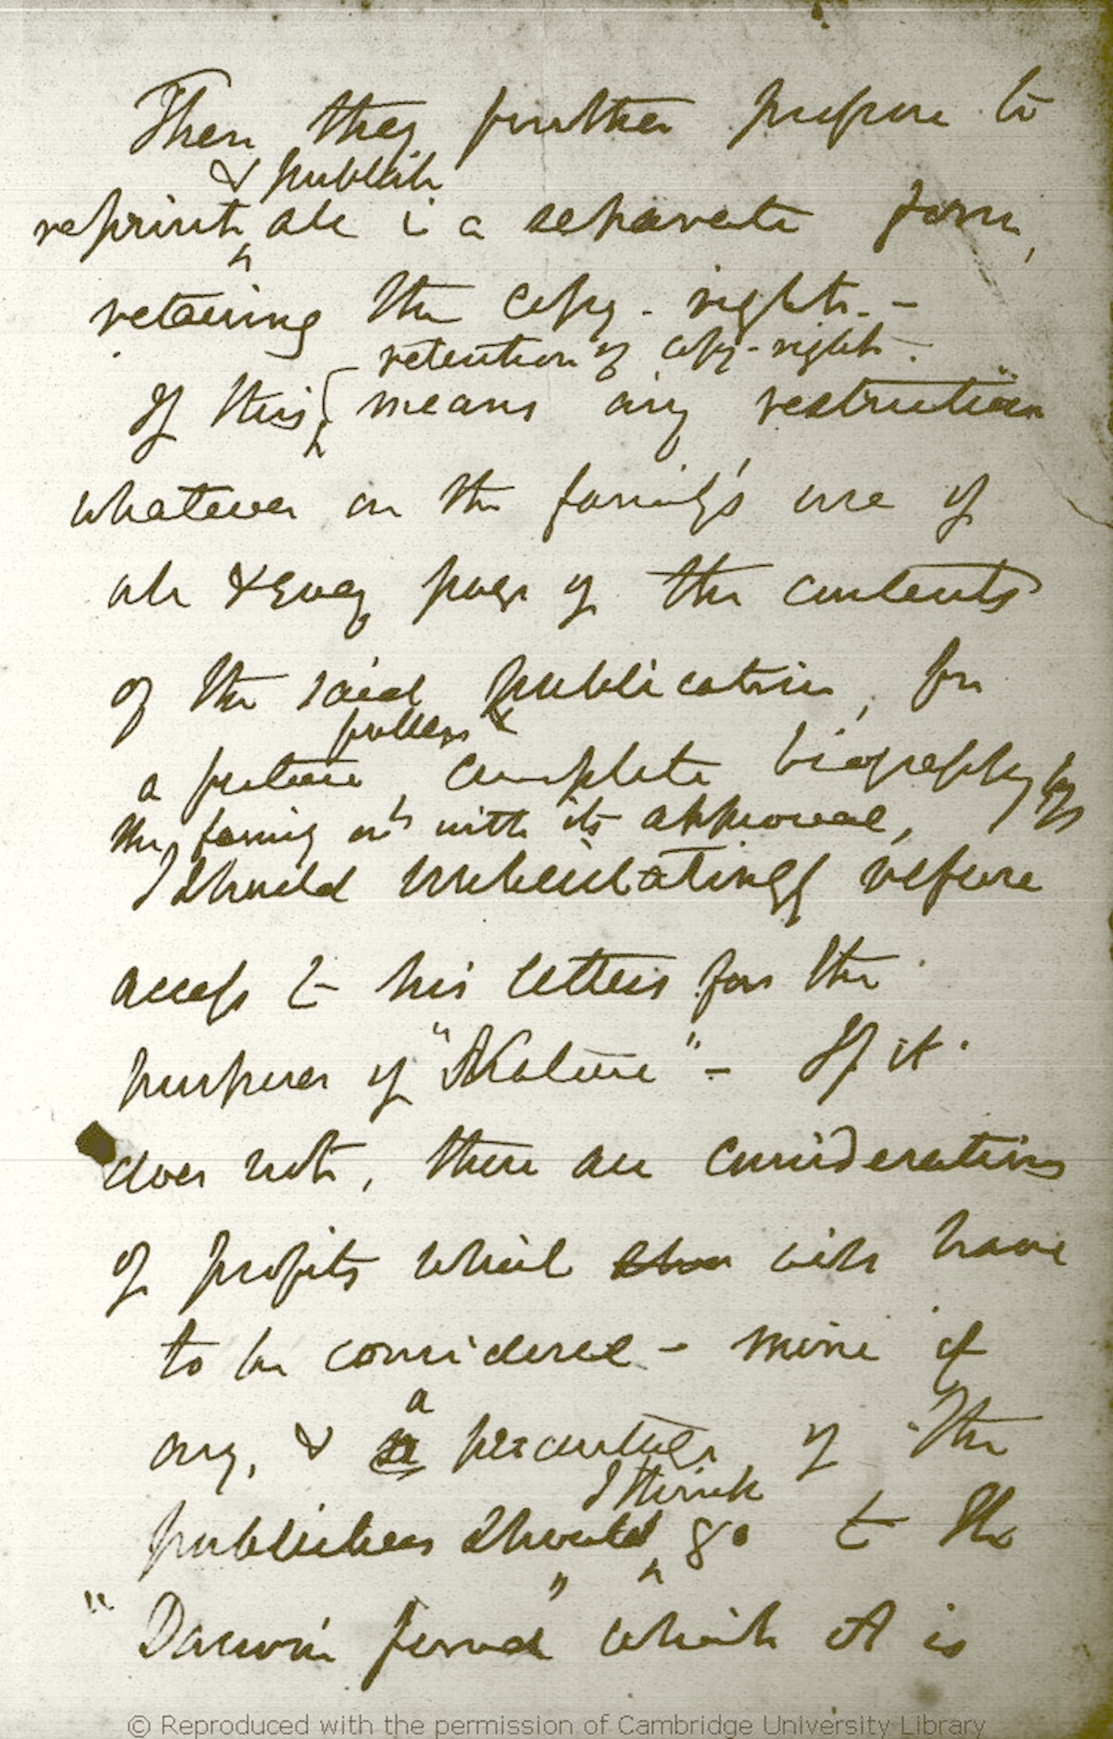 Then they further propose to
& publish
reprint all in a separate form,
retaining the copy-rights. -
retention of copy-right
If this means any restriction
whatever on the family's use of
all & every page of the contents
of the said publication, for
fuller &
a future complete biography by
the family or with its approval,
I should unhesitatingly refuse
access to his letters for the
purposes of "Nature" - If it
does not, there are considerations
of profits which will have
to be considered - mine if
a
any, & percentage of the
I think
publishers should go to the
"Darwin fund" which it is
© Reproduced with the permission of Cambridge University Library